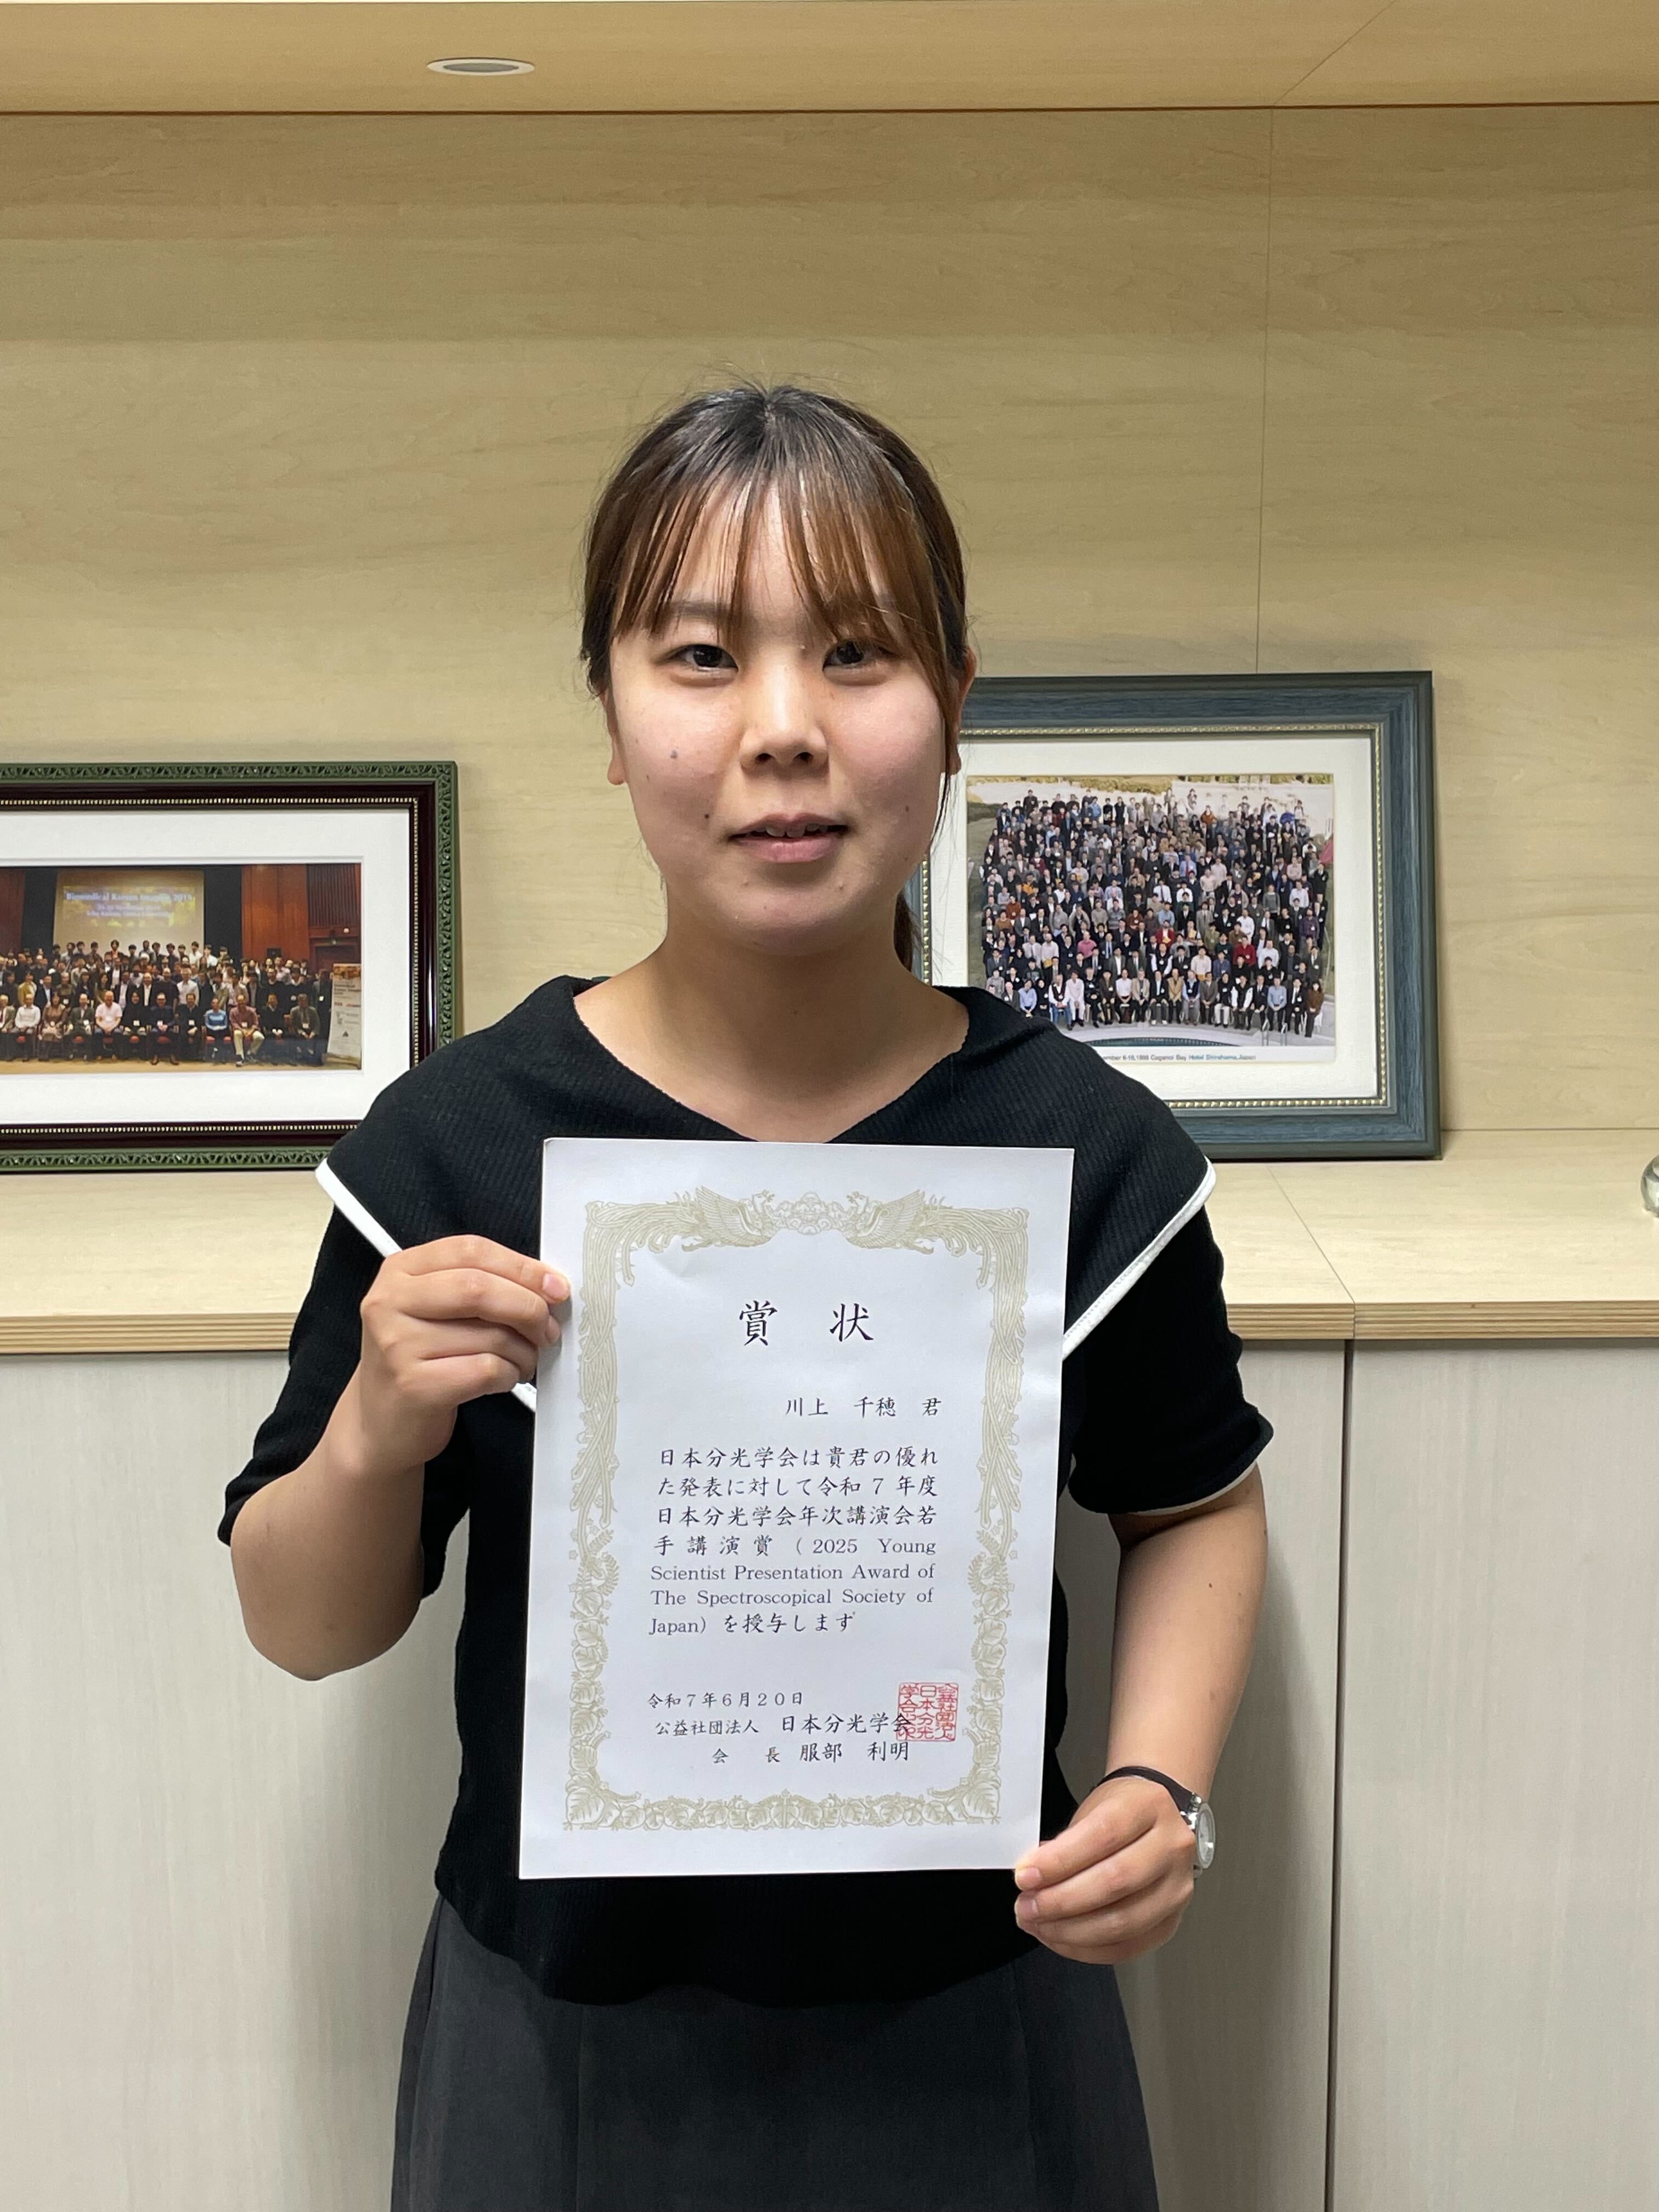 Biomedical Raman Imaging 2018
Hotel Shirahama,Japan
賞 状
川上 千穂 君
日本分光学会は貴君の優れ
た発表に対して令和７年度
日本分光学会年次講演会若
手講演賞（2025 Young
Scientist Presentation Award of
The Spectroscopical Society of
Japan）を授与します
令和７年６月２０日
公益社団法人 日本分光学会
会 長 服部 利明